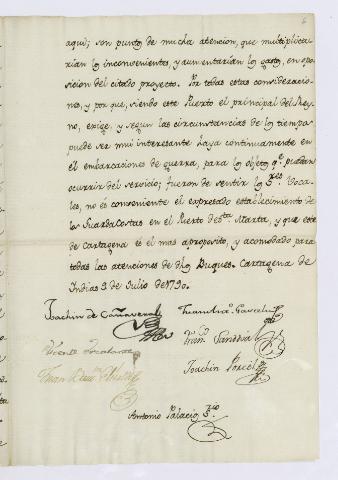 aqui; son punto de mucha atencion, que multiplica-
rían los inconvenientes, y aumentarían los gastos, en opo-
sicion del citado proyecto. Por todas estas consideracio-
nes, y por que, siendo este Puerto el principal del Rey-
no, exige, y segun las circunstancias de los tiempos
puede ser mui interesante haya continuamente en
el embarcaciones de guerra, para los objetos q.e puedan
ocurrir del servicio; fueron de sentir los S.res Voca-
les, no es conveniente el expresado establecimiento de
los Guarda Costas en el Puerto de S.ta Marta, y que este
de Cartagena es el mas aproposito, y acomodado para
todas las atenciones de dhos Buques. Cartagena de
Indias 9 de Julio de 1790.
Joachin de Cañaveral
Fran.co Sanddia
Joachin Porcel
Antonio Palacio